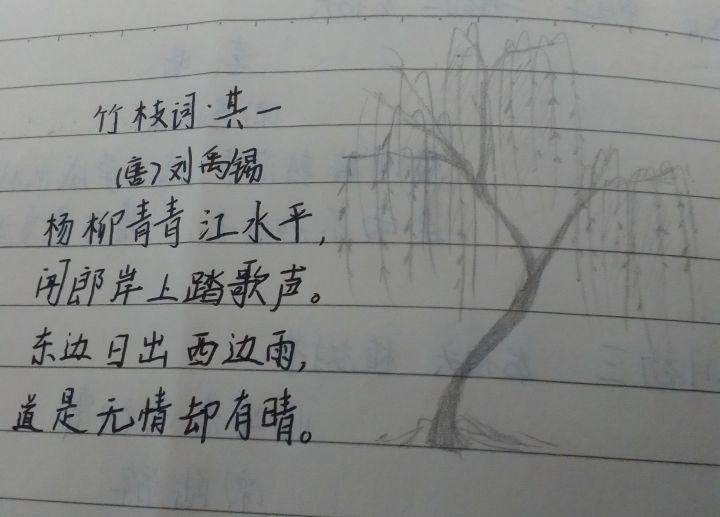 竹枝词·其一
(唐)刘禹锡
杨柳青青江水平,
闻郎岸上踏歌声。
东边日出西边雨,
道是无情却有晴。